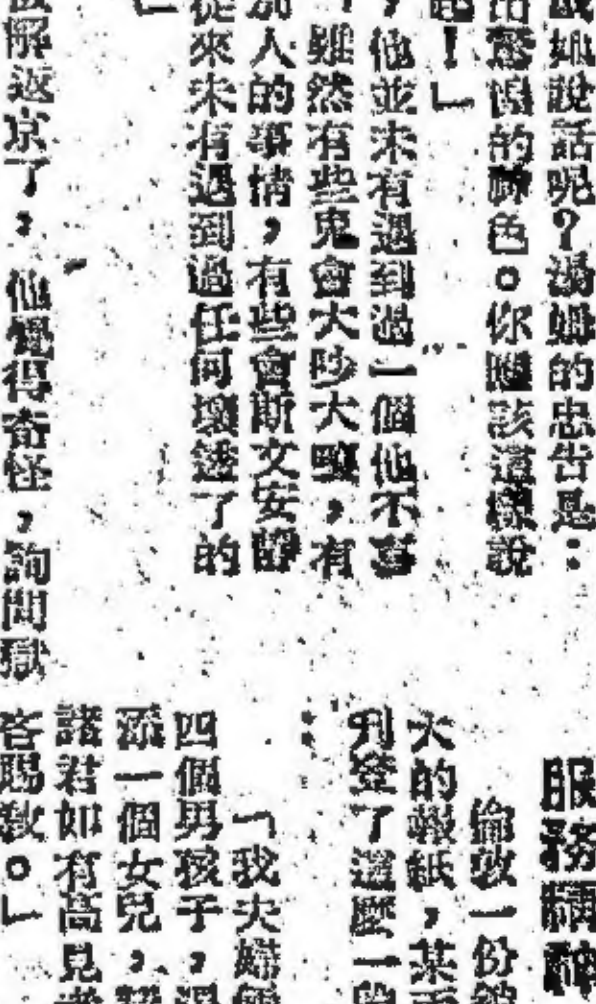 她說話呢？湯姆的忠告是：
的神色。你應該這樣說
！」
，他並未有遇到過一個他不喜
雖然有些鬼會大吵大嚷，有
人的事情，有些會斯文安靜
從來未有遇到過任何壞透了的
」
解返京了，他覺得奇怪，詢問獄
服務精神
倫敦一份
大的報紙，某
刊登了這麼一
：
「我夫婦
四個男孩子，
添一個女兒，
諸君如有高見
吝賜教。」